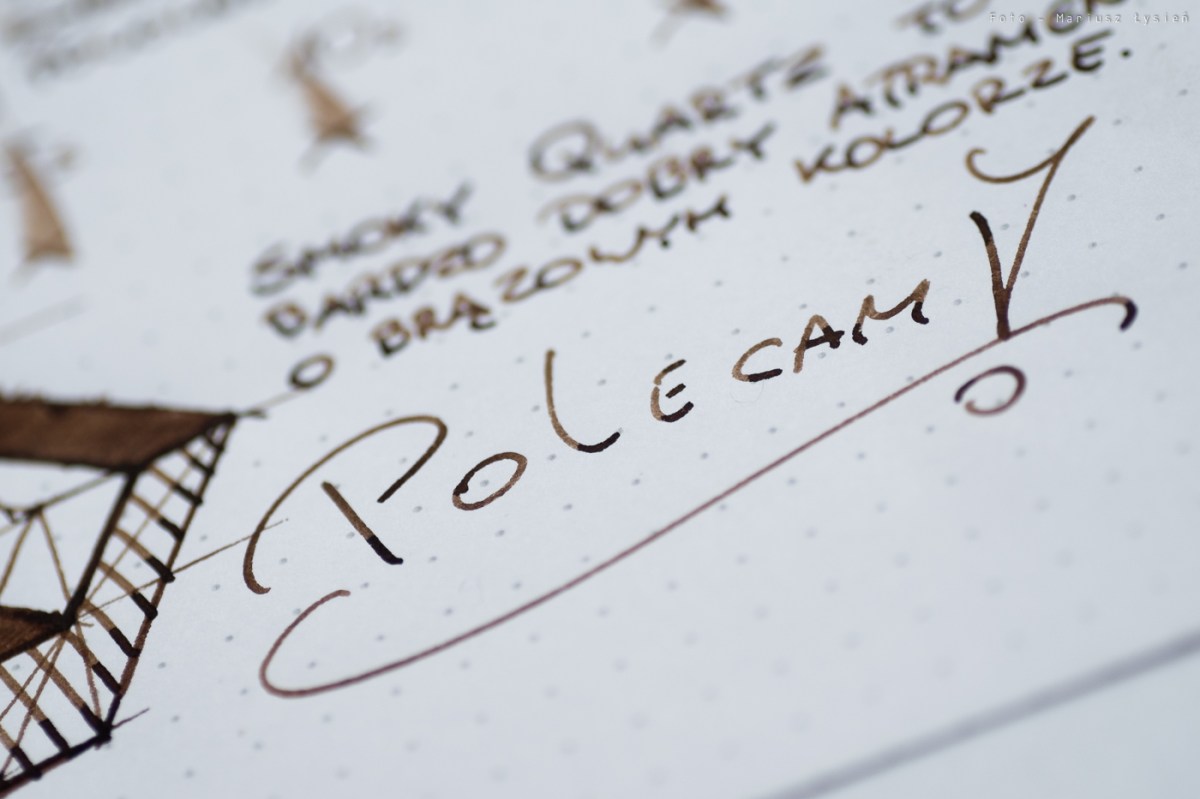 Foto - Mariusz Łysień
SMOKY QUARTZ TO
BARDZO DOBRY ATRAMENT
O BRĄZOWYM KOLORZE.
POLECAM!